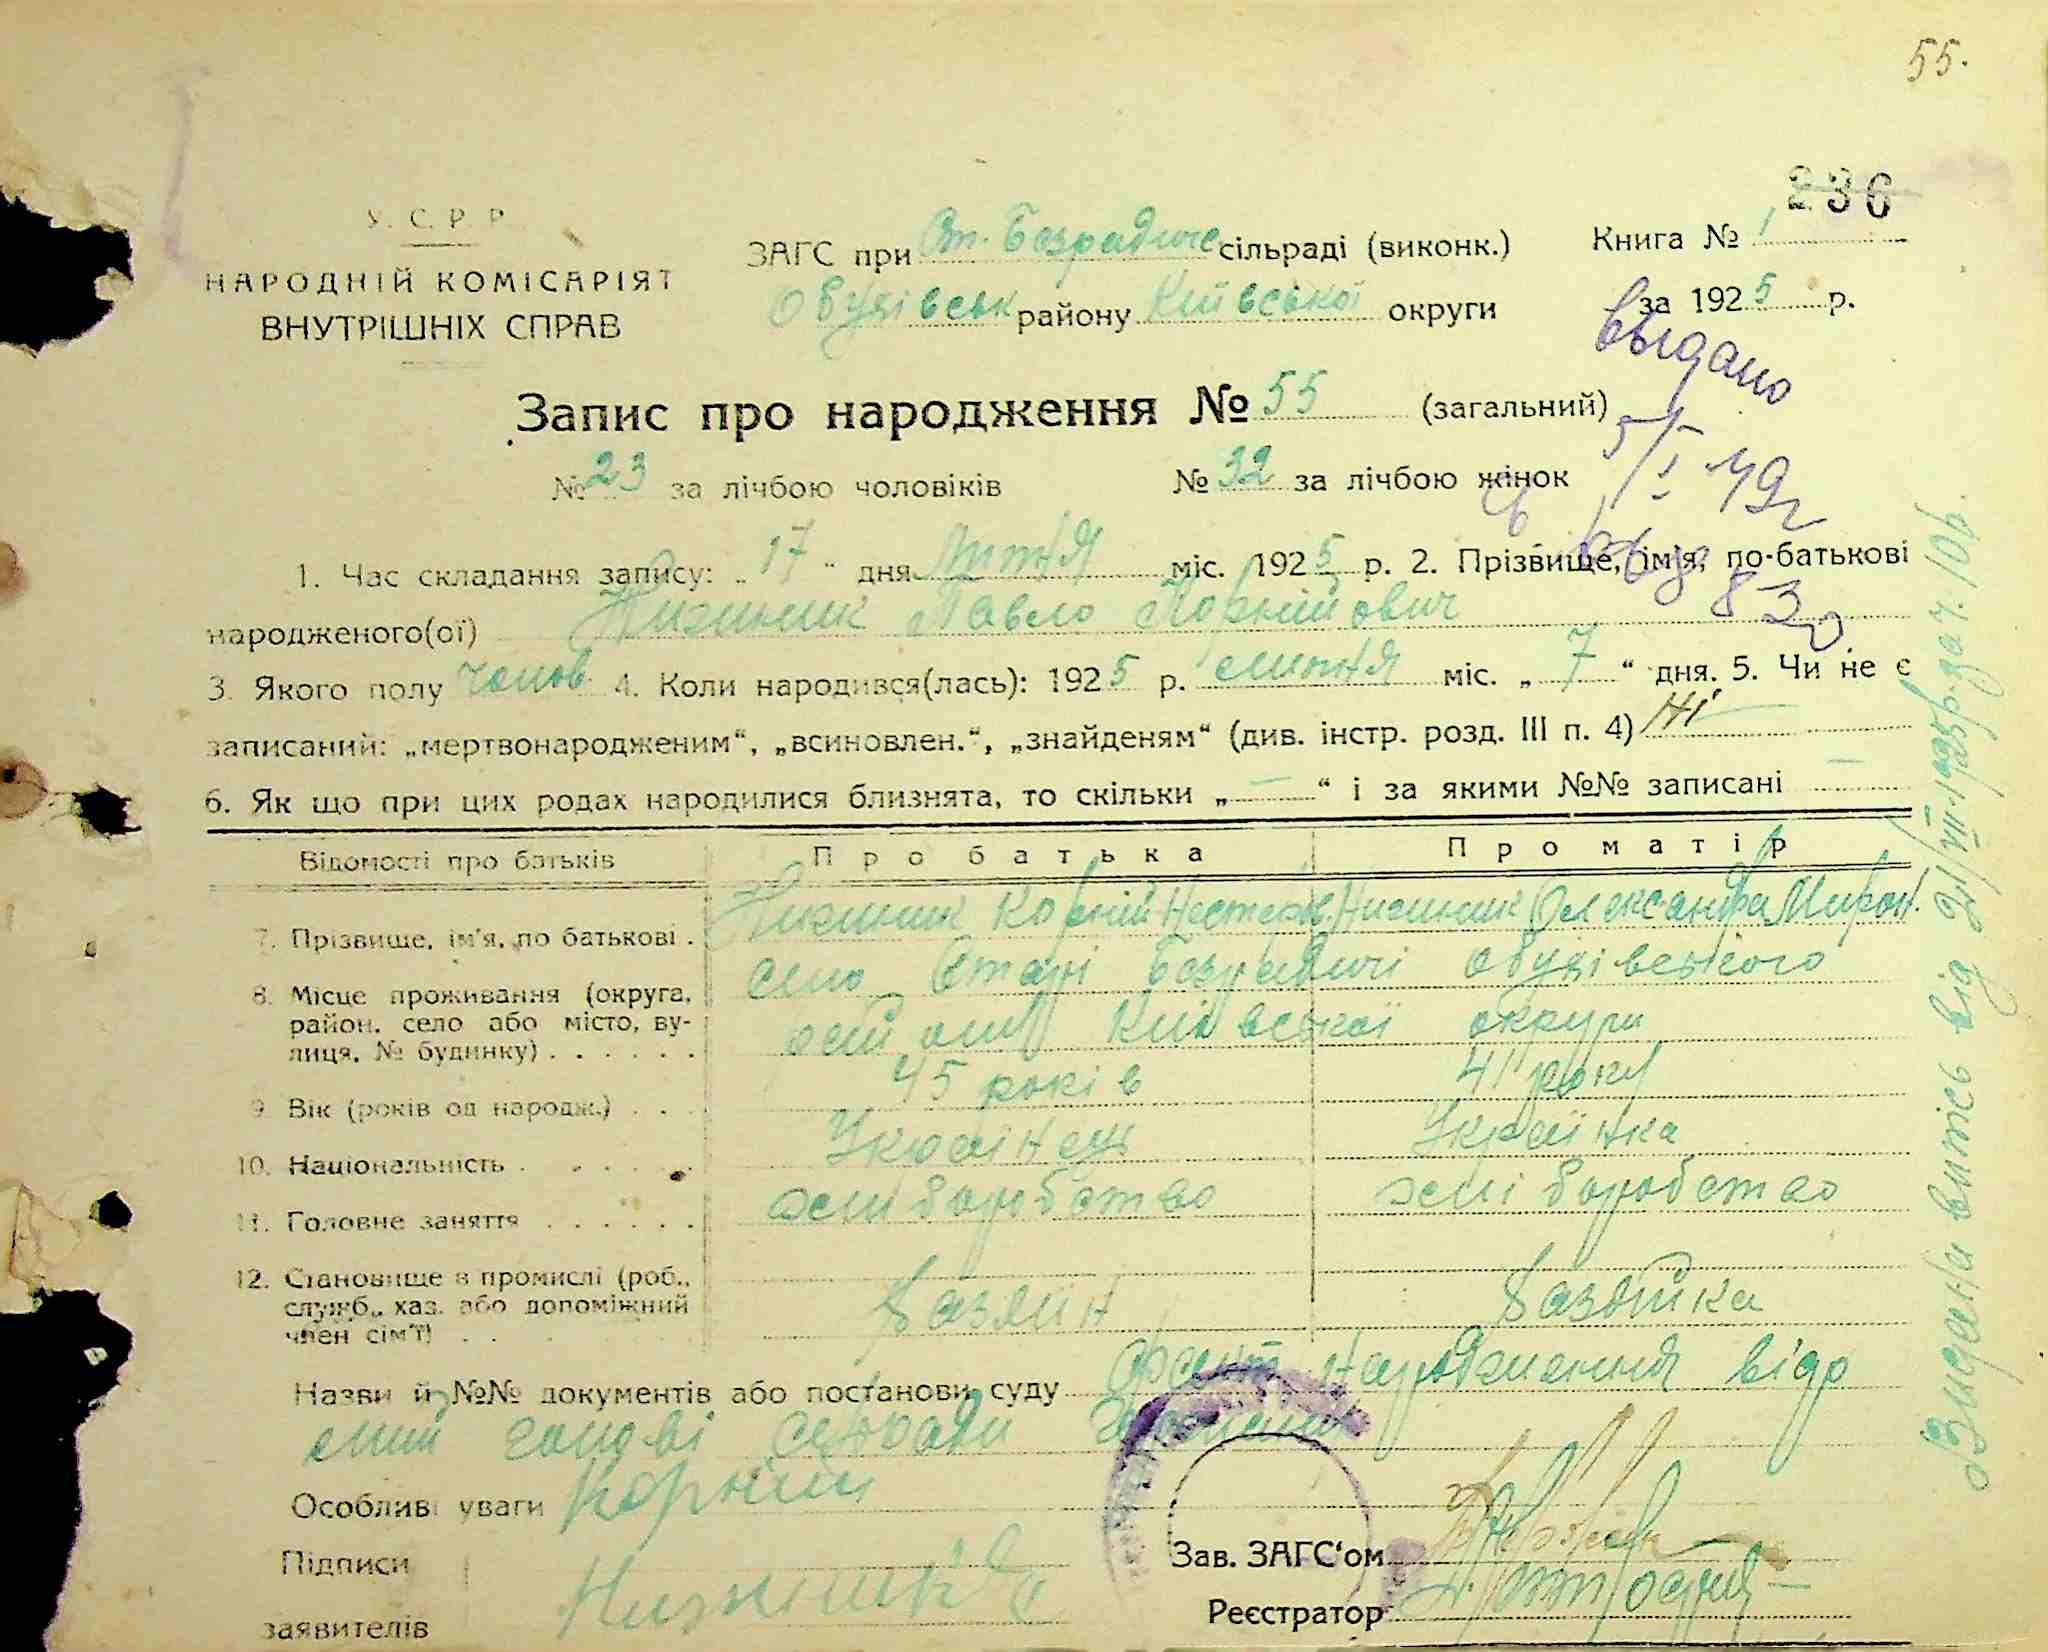 55.
236
У. С. Р. Р.
НАРОДНІЙ КОМІСАРІЯТ
ВНУТРІШНІХ СПРАВ
ЗАГС при Ст. Безрадиче сільраді (виконк.)
Обухівськ району Київської округи
Книга № 1
за 1925 р.
выдано
5/I 49 г
830
Запис про народження № 55 (загальний)
№ 23 за лічбою чоловіків № 32 за лічбою жінок
1. Час складання запису: „ 17 “ дня Липня міс. 1925 р. 2. Прізвище, ім'я, по-батькові
народженого(ої) Нижник Павло Корнійович
3. Якого полу чолов 4. Коли народився(лась): 1925 р. липня міс. „ 7 “ дня. 5. Чи не є
записаний: „мертвонародженим“, „всиновлен.“, „знайденям“ (див. інстр. розд. III п. 4) Ні
6. Як що при цих родах народилися близнята, то скільки „ — “ і за якими №№ записані —
Відомості про батьків Про батька Про матір
7. Прізвище, ім'я, по батькові . Нижник Корній Нестеров. Нижник Олександра Мирон.
8. Місце проживання (округа, район, село або місто, вулиця, № будинку) . . . . . . село Старі Безрадичі Обухівського
Київської округи
9. Вік (років од народж.) . . . 45 років 41 року
10. Національність . . . . . . Українець Українка
11. Головне заняття . . . . . . хліборобство хліборобство
12. Становище в промислі (роб., служб., хаз. або допоміжний член сім'ї) . . Хазяїн Хазяйка
Назви й №№ документів або постанови суду факт народження відо
мий голові сільради
Особливі уваги Корній
Підписи
заявителів Нижник
Зав. ЗАГС'ом
Реєстратор
Видани витісь від 21/VII-1925р. за ч. 106.